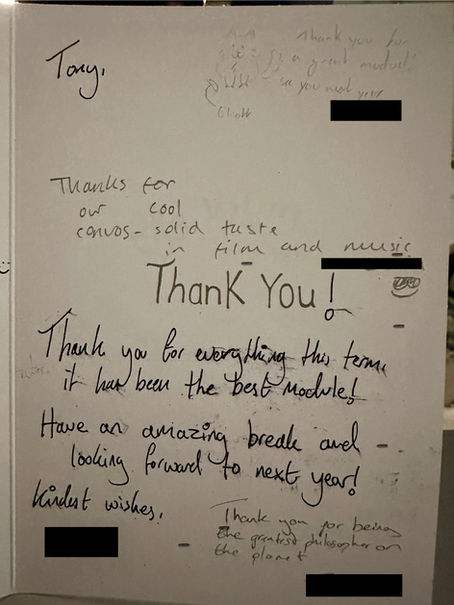 Tony,
Thank you for
a great module!
see you next year
Thanks for
our cool
convos - solid taste
in film and music
Thank You!
Thank you for everything this term,
it has been the best module!
Have an amazing break and
looking forward to next year!
Kindest wishes,
Thank you for being
the greatest philosopher on
the planet